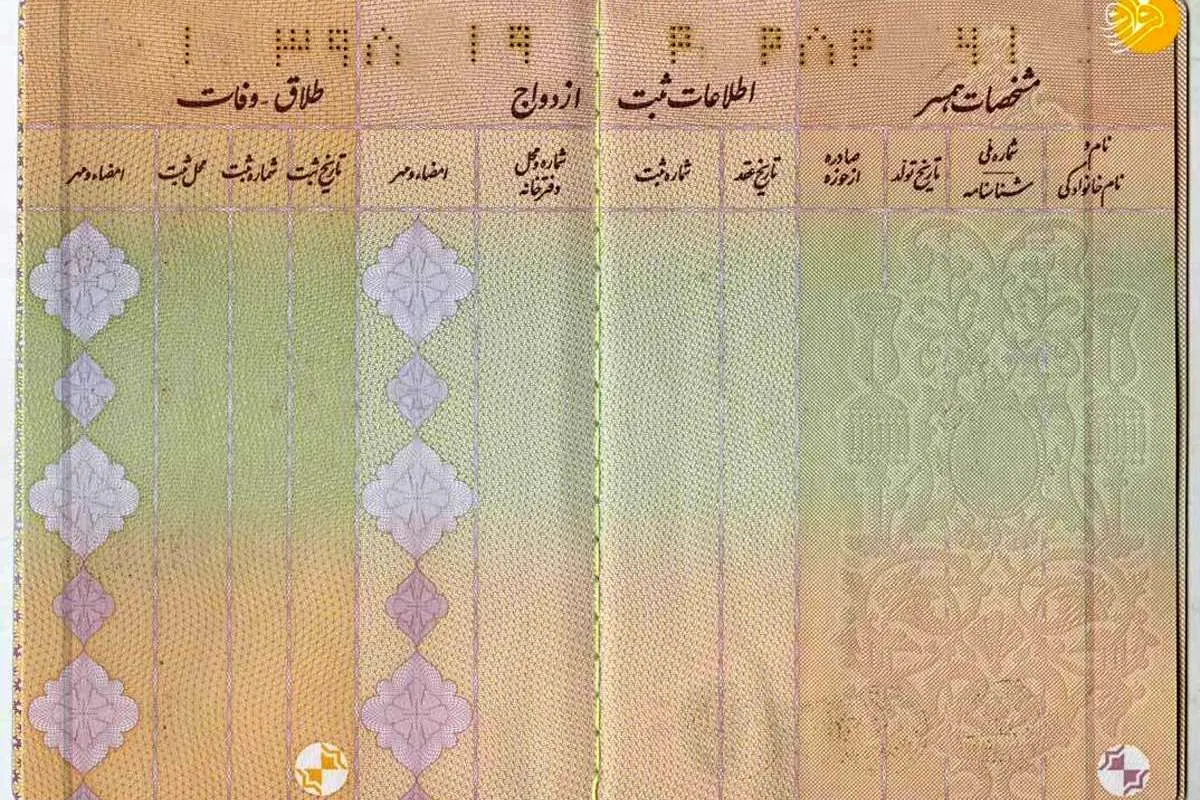 مشخصات همسر
اطلاعات ثبت ازدواج
طلاق - وفات
نام و
نام خانوادگی
شماره ملی
شناسنامه
تاریخ تولد
صادره
از حوزه
تاریخ عقد
شماره ثبت
شماره و محل
دفترخانه
امضاء و مهر
تاریخ ثبت
شماره ثبت
محل ثبت
امضاء و مهر